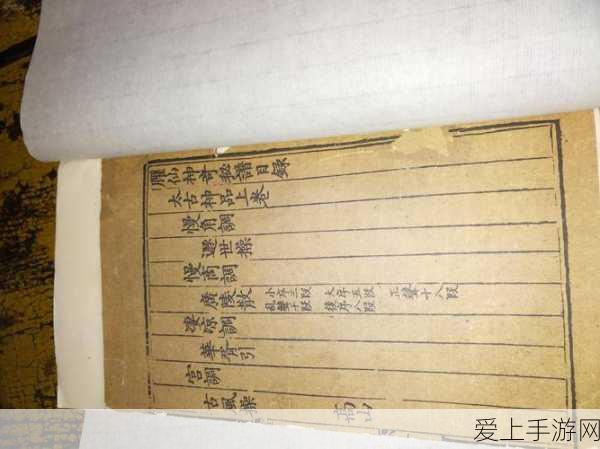 臞仙神奇秘譜目錄
太古神品上卷
慢角調
遯世操
慢商調
廣陵散
小序三段
大序五段
正聲十八段
亂聲十段
後序八段
淒涼調
華胥引
宮調
古風操
高山
爱上手游网